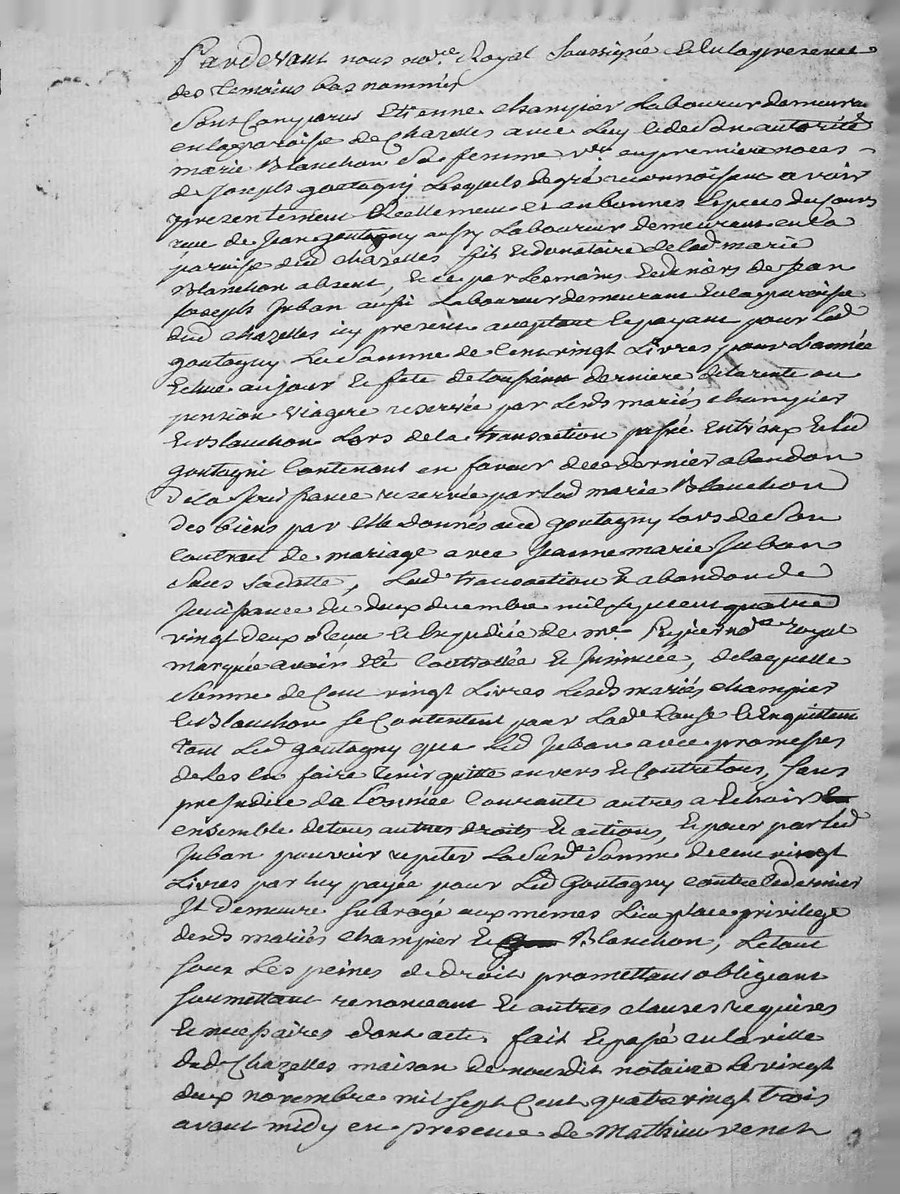 Pardevant nous no.re Royal soussigné et en la presence
des temoins bas nommés
sont comparus Etienne champier Laboureur demeura.
en la paroise de Chazelles avec Luy et de son autorité
marie Blanchon sa femme v.e en premiere noces
de Joseph goutagny Lesquels de gré reconnoissent avoir
presentement Reellement et en bonnes Especes du Cours
receu de Jean goutagny aussy Laboureur demeurant en la
paroise dud chazelles fils et donataire de lad marie
Blanchon absent, et ce par les mains et deniers de Jean
Joseph Juban aussi Laboureur demeurant en la paroise
dud chazelles icy present aceptant et payant pour led
goutagny La somme de Cent vingt Livres pour L'année
Echue au jour et fete de toussaint derniere de la rente ou
pension viagere reservée par Lesds mariés champier
et Blanchon Lors de la transaction passée entr'eux et led
goutagni Contenant en faveur de ce dernier abandon
de la jouissance reservée par lad marie Blanchon
des biens par elle donnés aud goutagny lors de son
contrat de mariage avec Jeanne marie Juban
sous sa datte, Lad transaction et abandon de
Jouissance du deux decembre mil sept cent quatre
vingt deux Receu et Expediée de m.e no.re royal
marquée avoir eté Controllée et Insinuée, de laquelle
somme de Cent vingt Livres Lesds mariés champier
et Blanchon se Contentent pour Lad.e Cause et En quittent
tant Led goutagny que Led Juban avec promesses
de les en faire tenir quitte envers et Contre tous, sans
prejudice de L'année Courante autres a Echoir
ensemble de tous autres droits et actions, et pour par led
Juban pouvoir repeter La susd.e somme de cent vingt
Livres par luy payée pour Led Goutagny contre ce dernier
Il demeure subrogé aux memes Lieu place privilege
desds mariés champier et Blanchon, Le tout
sous Les peines de droit promettant obligeant
soumettant renonceant et autres clauses requises
et necessaires dont acte fait et passé en la ville
dud Chazelles maison de nourdit notaire Le vingt
deux novembre mil sept Cent quatre vingt trois
avant midy en presence de Mathieu venet